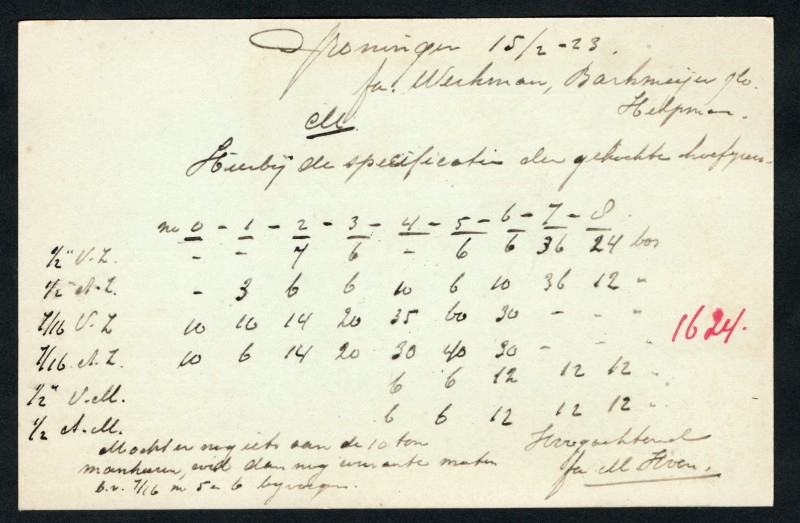 Groningen 15/2-23.
fa. Werkman, Barkmeijer &Co.
Helpman.
M.
Hierbij de specificatie der gekochte hoefijzers.
no 0 - 1 - 2 - 3 - 4 - 5 - 6 - 7 - 8
1/2" V.L. - - 7 6 - 6 6 36 24 bos
1/2" A.L. - 3 6 6 10 6 10 36 12 "
7/16 V.L 10 10 14 20 35 60 30 - - "
7/16 A.L. 10 6 14 20 30 40 30 - - "
1/2" V.M. 6 6 12 12 12 "
1/2 A.M. 6 6 12 12 12 "
1624.
Mocht er nog iets aan de 10 ton
mankeeren, wil dan nog courante maten
b.v. 7/16 no 5 en 6 bijvoegen.
Hoogachtend
fa M